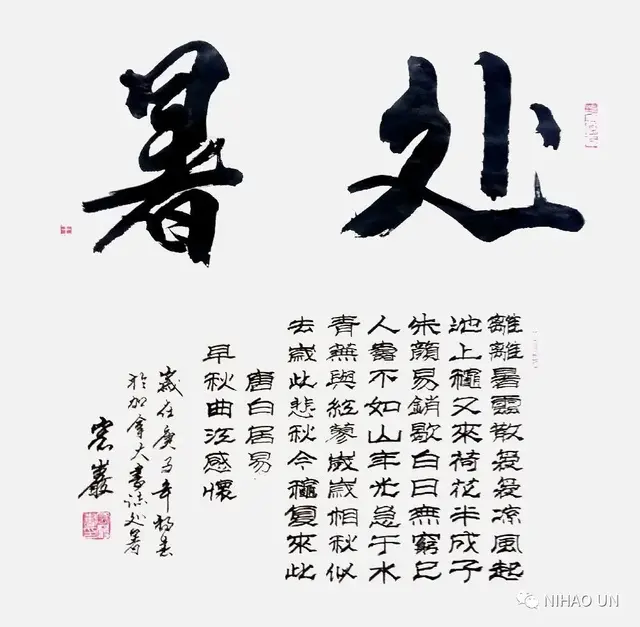 处暑
離離暑雲散裊裊凉風起
池上穐又來荷花半成子
朱顏易銷歇白日無窮已
人壽不如山年光急于水
青蕪與紅蓼歲歲相秋似
去歲此悲秋今穐復來此
唐白居易
早秋曲江感懷
歲在庚子年
於加拿大書詩处暑
NIHAO UN